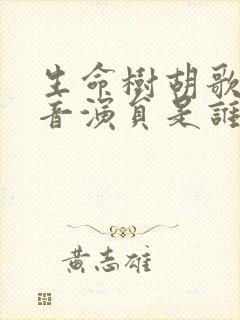 生命樹胡歌
音演員是誰
黃志雄